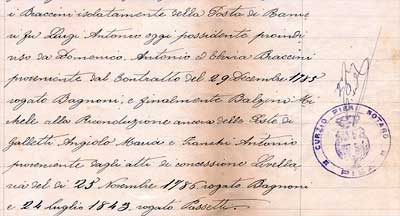 i Braccini isolatamente della Posta di Bame
u fu Luigi Antonio oggi possidente provvi
uso da Domenico, Antonio e Elvira Braccini
proveniente dal Contratto del 29 Decembre 1785
rogato Bagnoni, e finalmente Balzini Mi
chele alla Riconduzione ancora delle Sole di
Galletti Angiolo Maria e Franchi Antonio
proveniente dagli atti di concessione Livella
ria del di 25 Novembre 1786 rogato Bagnoni
e 24 luglio 1843 rogato Passetti.
CURZIO PIERI NOTARO
PISA